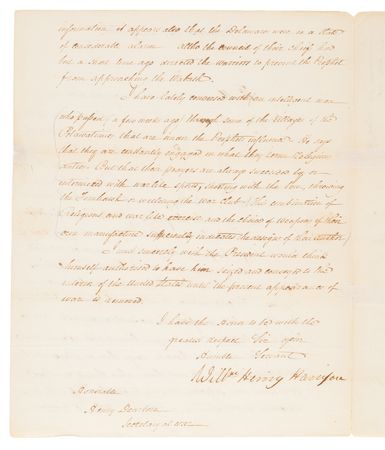 information it appears also that the Delawares were in a State
of considerable alarm altho the council of their chiefs had
but a short time ago directed the warriors to prevent the Prophet
from approaching the Wabash.
I have lately conversed with an intelligent man
who passed a few weeks ago through some of the villages of the
Potawatimies that are under the Prophets influence. He says
that they are constantly engaged in what they term religious
duties. But that their prayers are always succeeded by or
intermixed with warlike sports, shooting with the bow, throwing
the Tomhawk or wielding the war club. This combination of
Religious and warlike exercises and the choice of weapons of their
own manufacture sufficiently indicates the designs of their author.
I most sincerely wish the President would think
himself authorised to have him seized and conveyed to the
interior of the United States until the present appearance of
war is removed.
I have the Honor to be with the
greatest respect Sir your
Humble Servant
Willm Henry Harrison
Honorable
Henry Dearborn
Secretary of War